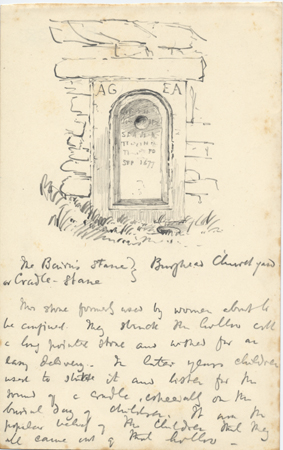 AG EA
1677
The Bairn's Stane } Burghead Church yard
or Cradle-Stane
This stone formerly used by women about to
be confined. They struck the hollow with
a long pointed stone and wished for an
easy delivery. In later years children
used to strike it and listen for the
sound of a cradle, especially on the
burial day of children. It was the
popular belief of the children that they
all came out of that hollow.